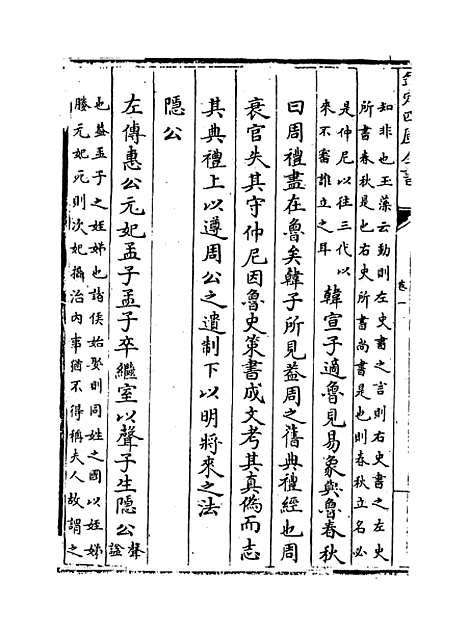 欽定四庫全書
卷一
知非也玉藻云動則左史書之言則右史書之左史
所書春秋是也右史所書尚書是也則春秋立名必
是仲尼以往三代以
來不審誰立之耳
韓宣子適魯見易象與魯春秋
曰周禮盡在魯矣韓子所見蓋周之舊典禮經也周
衰官失其守仲尼因魯史策書成文考其真偽而志
其典禮上以遵周公之遺制下以明將來之法
隱公
左傳惠公元妃孟子孟子卒繼室以聲子生隱公
聲
諡
也蓋孟子之姪娣也諸侯始娶則同姓之國以姪娣
媵元妃死則次妃攝治內事猶不得稱夫人故謂之